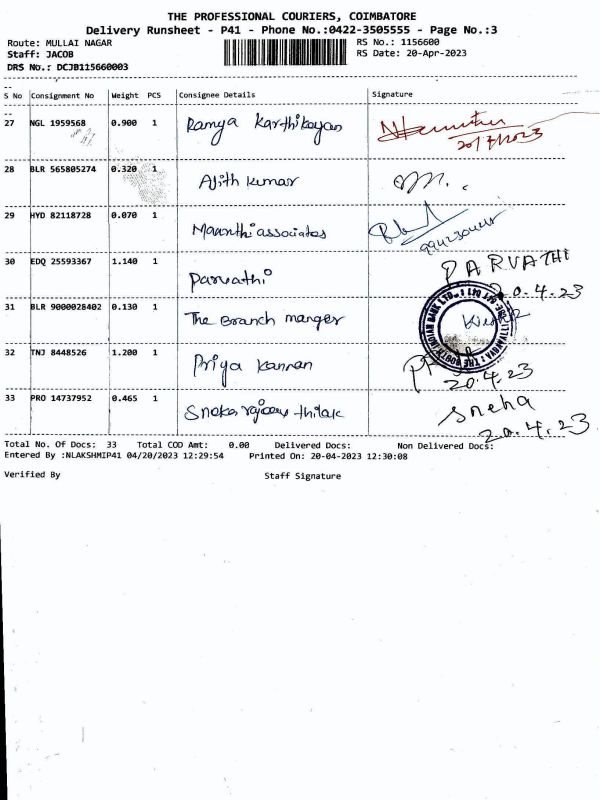 THE PROFESSIONAL COURIERS, COIMBATORE
Delivery Runsheet - P41 - Phone No.:0422-3505555 - Page No.:3
Route: MULLAI NAGAR RS No.: 1156600
Staff: JACOB RS Date: 20-Apr-2023
DRS No.: DCJB115660003
S No Consignment No Weight PCS Consignee Details Signature
27 NGL 1959568 0.900 1 Ramya Karthikeyan
28 BLR 565805274 0.320 1 Ajith kumar
29 HYD 82118728 0.070 1 Maruthi associates
30 EDQ 25593367 1.140 1 Parvathi PARVATHI
20.4.23
31 BLR 9000028402 0.130 1 The Branch manger
32 TNJ 8448526 1.200 1 Priya kannan
20.4.23
33 PRO 14737952 0.465 1 Sneka thilak sneha
20.4.23
Total No. Of Docs: 33 Total COD Amt: 0.00 Delivered Docs: Non Delivered Docs:
Entered By :NLAKSHMIP41 04/20/2023 12:29:54 Printed On: 20-04-2023 12:30:08
Verified By Staff Signature